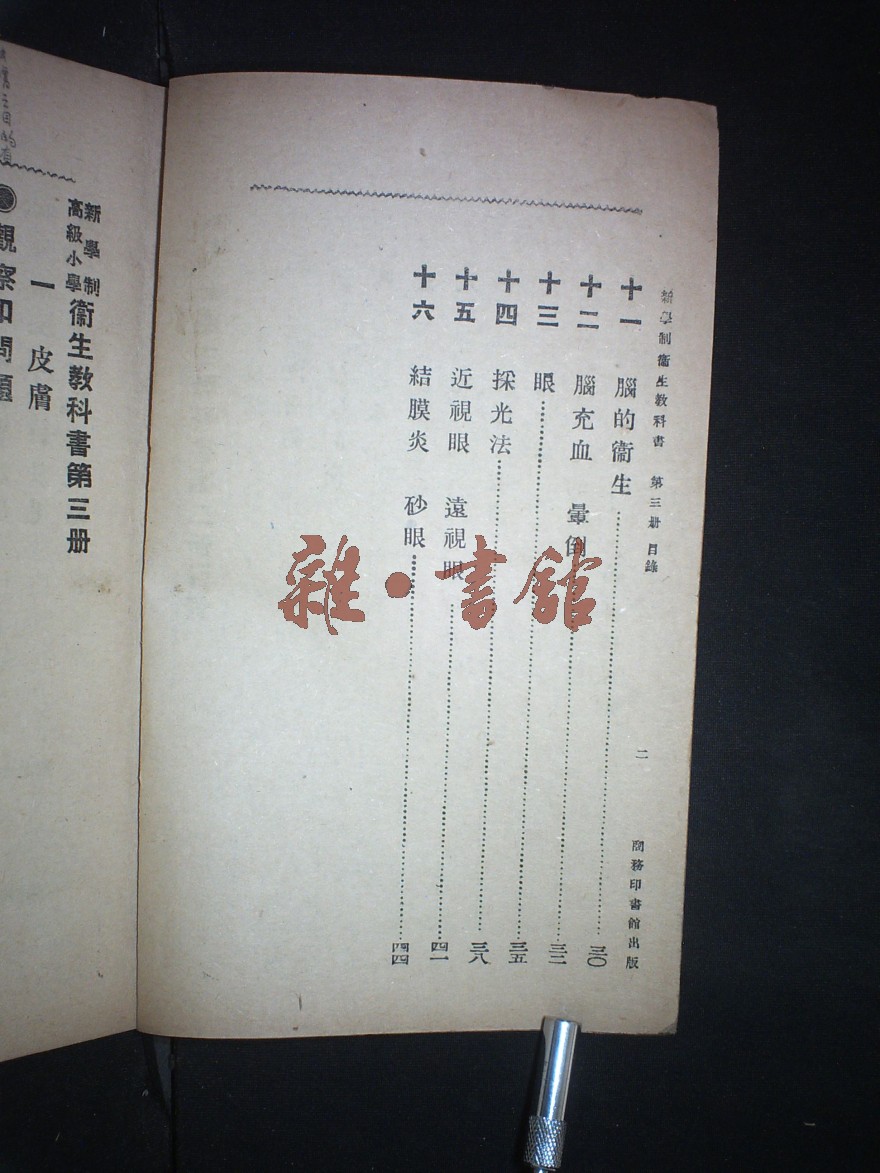 新學制衞生教科書 第三册 目錄 二 商務印書館出版
十一 腦的衞生……三〇
十二 腦充血 暈倒……三三
十三 眼……三五
十四 採光法……三八
十五 近視眼 遠視眼……四一
十六 結膜炎 砂眼……四四
新學制
高級小學
衞生教科書第三册
一 皮膚
觀察和問題
雜·書館